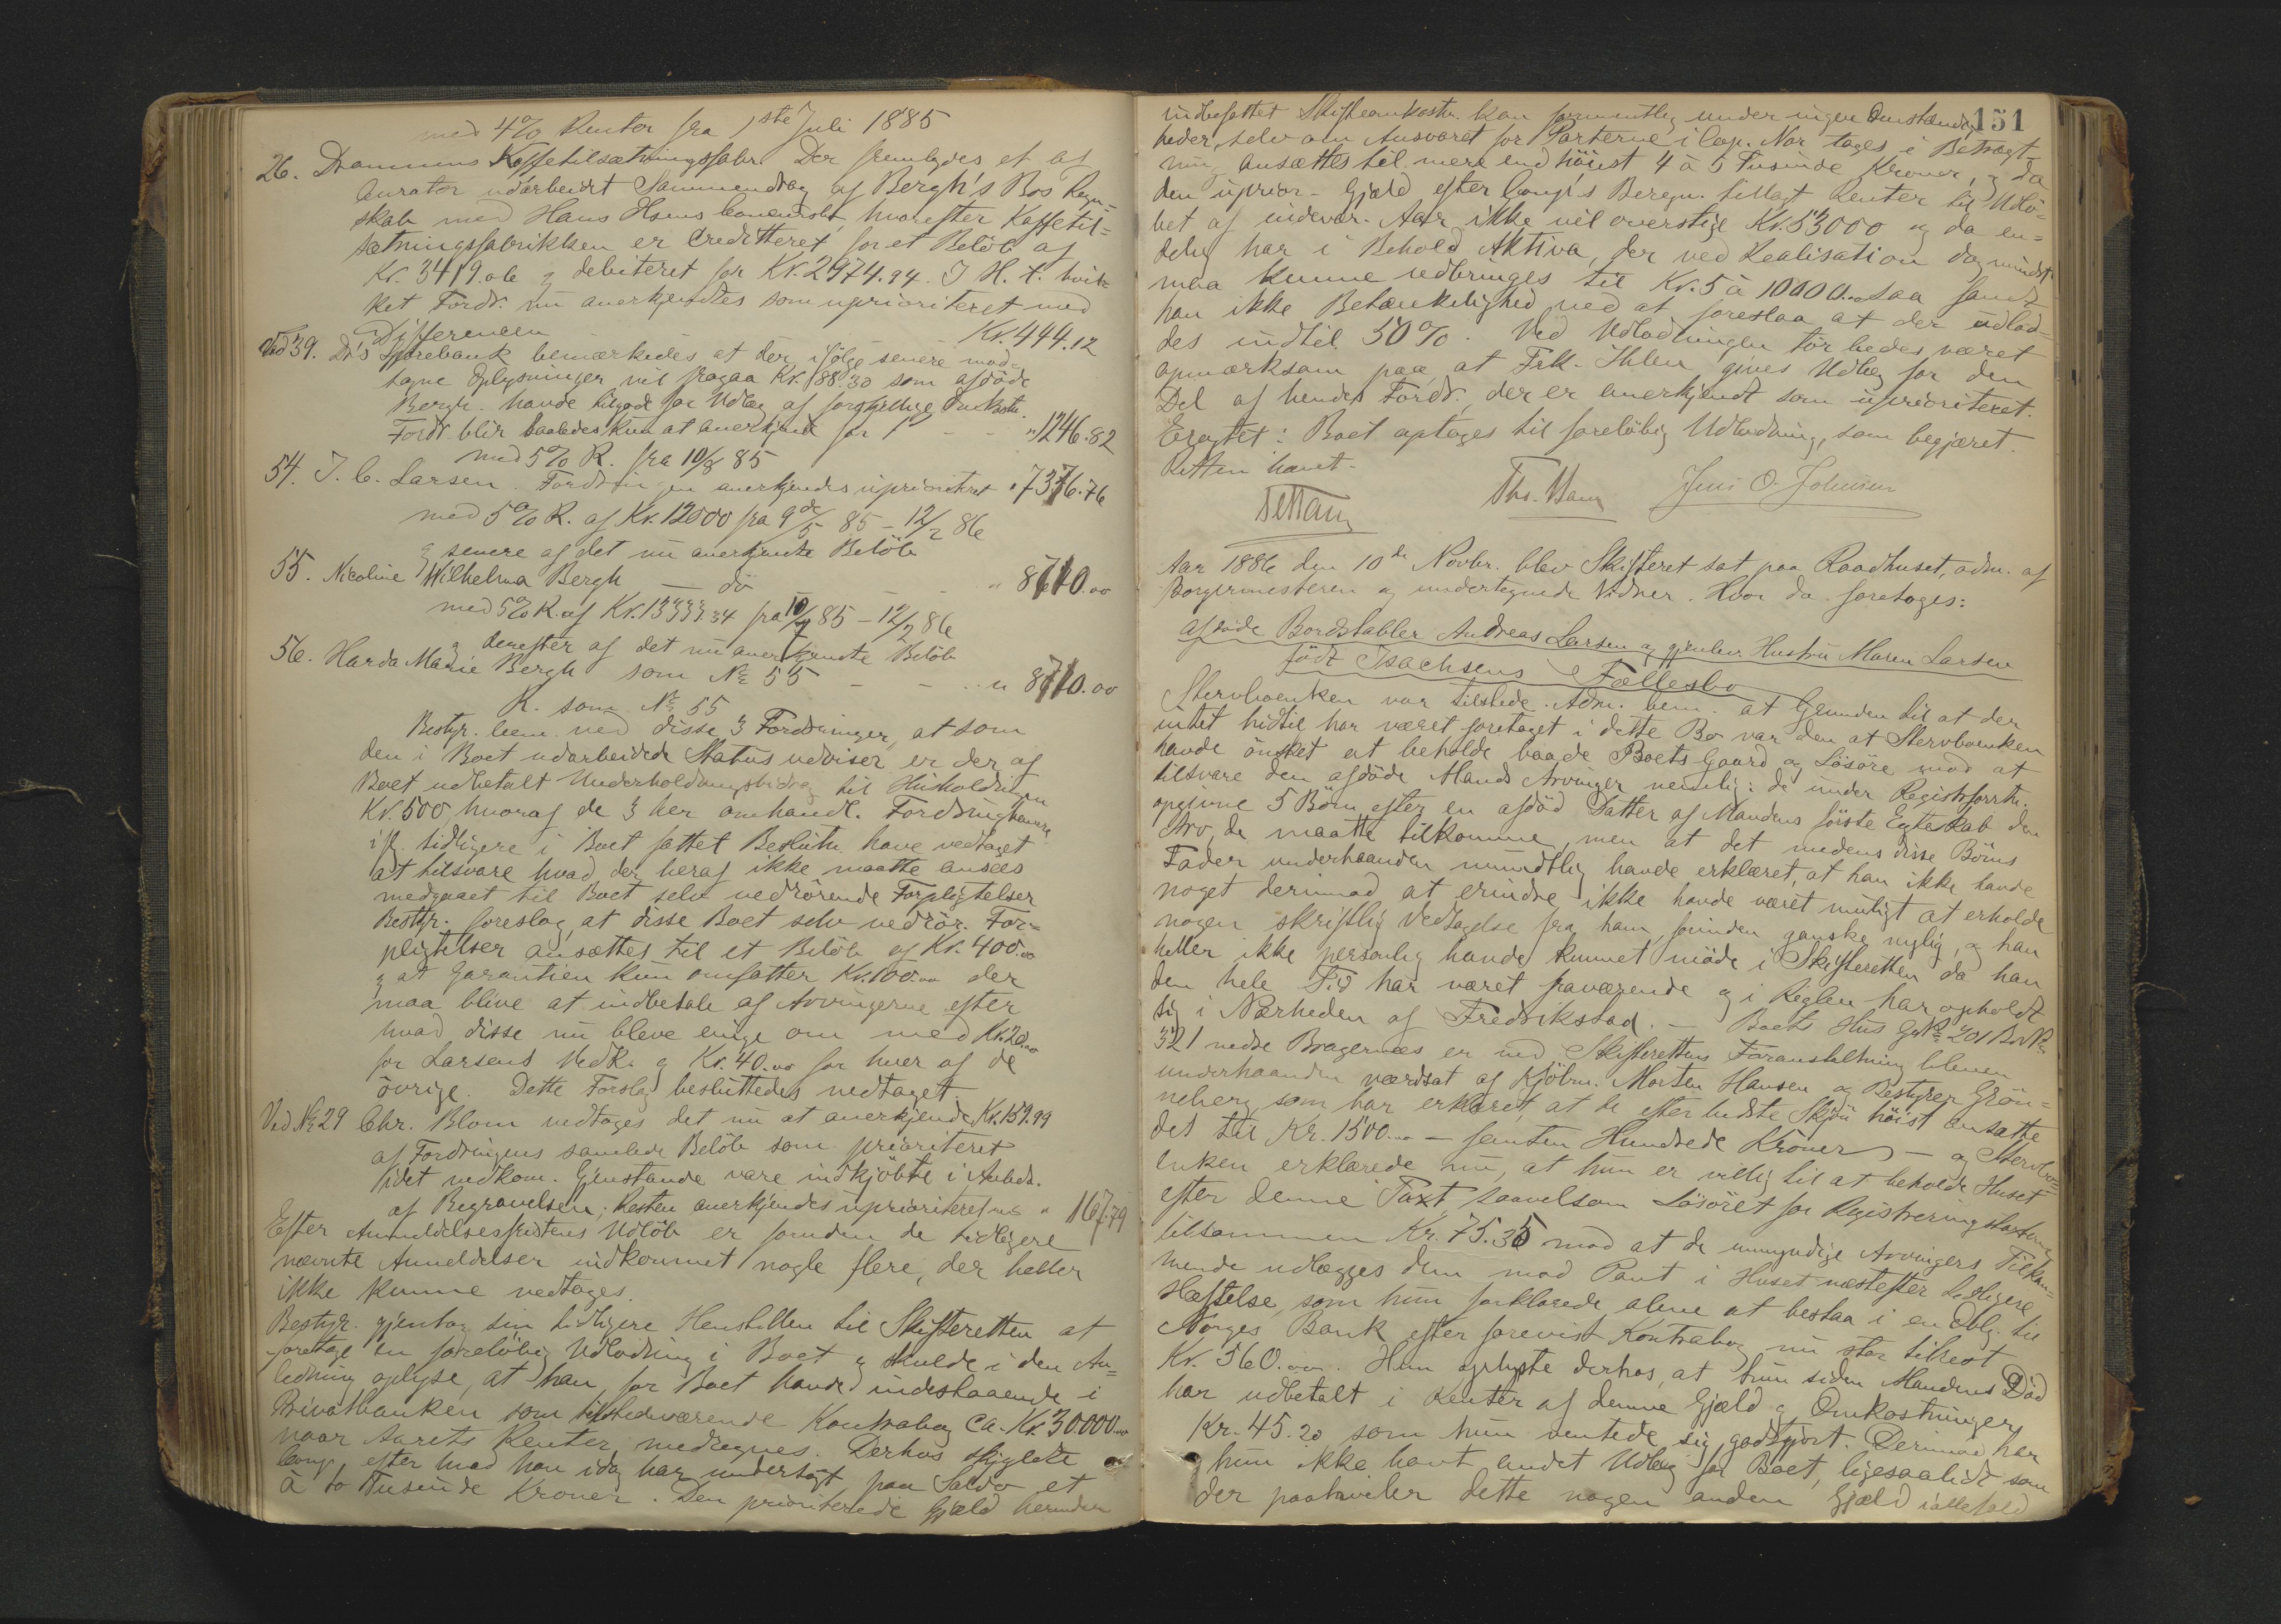 med 4% Renter fra 1ste Juli 1885
26. Drammens Kaffetilsætningsfabr. Der frembydes et af
Curator udarbeidet Sammendrag af Bergh's Bos Regn-
skab med Hans Olsens hvorefter Kaffetil-
sætningsfabrikken er Crediteret for et Beløb af
Kr. 3419.06 og debiteret for Kr. 2974.94. I H. t. hvil-
ket Fordr. nu anerkjendtes som uprioriteret med
Differencen Kr. 444.12
Ved 39. Dr's Sparebank bemærkedes at der ifølge senere mod-
tagne Oplysninger vil fragaa Kr. 88.30 som afdøde
Bergh havde tilgode for Udlæg af forskjellige Omkostn.
Fordr. blir saaledes kun at anerkjende for - - " 1246.82
med 5% R. fra 10/8 85
54. I. C. Larsen. Fordringen anerkjendes uprioriteret " 7376.76
med 5% R. af Kr. 12000 fra 9de/5 85 - 12/2 86
og senere af det nu anerkjendte Beløb
55. Nicoline Wilhelmа Bergh — do - - " 8710.00
med 5% R. af Kr. 13333.34 fra 10/7 85 - 12/2 86
og derefter af det nu anerkjendte Beløb
56. Harda Marie Bergh som No 55 - - " 8710.00
R. som No 55
Bestyr. bem. ved disse 3 Fordringer, at som
den i Boet udarbeidede Status udviser er der af
Boet udbetalt Underholdningsbidrag til Husholdningen
Kr. 500, hvoraf de 3 her omhandl. Fordringshavere
ifg. tidligere i Boet fattet Beslutn. have vedtaget
at tilsvare hvad der heraf ikke maatte ansees
medgaaet til Boet selv vedrørende Forpligtelser
Bestyr. foreslog, at disse Boet selv vedrør. For-
pligtelser ansættes til et Beløb af Kr. 400.00
og at Garantien kun omfatter Kr. 100.00 der
maa blive at indbetale af Arvingerne efter
hvad disse nu bleve enige om med Kr. 20.00
for Larsens Vedk. og Kr. 40.00 for hver af de
øvrige. Dette Forslag besluttedes vedtaget.
Ved No 29 Chr. Blom vedtoges det nu at anerkjende Kr. 159.99
af Fordringens samlede Beløb som prioriteret
idet vedkom. Gjenstande vare indkjøbte i Anledn.
af Begravelsen; Resten anerkjendes uprioriteret med " 167.79
Efter Anmeldelsesfristens Udløb er foruden de tidligere
nævnte Anmeldelser indkommet nogle flere, der heller
ikke kunne vedtages.
Bestyr. gjentog sin tidligere Henstillen til Skifteretten at
foretage en foreløbig Udlodning i Boet og skulde i den An-
ledning oplyse, at han for Boet havde indestaaende i
Privatbanken som tilstedeværende Kontrabog Ca. Kr. 30.000.00
naar Aarets Renter medregnes. Derhos skyldte
Comp. efter hvad han idag har undersøgt paa Saldo et
à to Tusinde Kroner. Den prioriterede Gjæld herunder
151
indbefattet Skifteomkostn. kan formentlig under ingen Omstændig-
heder, selv om Ansvaret for Parterne i Cap. Nor tages i Betragt-
ning ansættes til mere end høiest 4 à 5 Tusinde Kroner, og da
den uprior. Gjæld efter Comp's Beregn. tillagt Renter til Udlø-
bet af indevær. Aar ikke vil overstige Kr. 53000 og da en-
delig har i Behold Aktiva, der ved Realisation dog mindst
maa kunne udbringes til Kr. 5 à 10000.00 saa fandt
han ikke Betænkelighed ved at foreslaa at der udlod-
des indtil 50%. Ved Udlodningen tør bedes været
opmærksom paa, at Frk. Ihlen gives Udlæg for den
Del af hendes Fordr., der er anerkjendt som uprioriteret.
Eragtet: Boet optages til foreløbig Udlodning, som begjæret.
Retten hævet.
Ths. Jens O. Johnsen
Aar 1886 den 10de Novbr. blev Skifteret sat paa Raadhuset, adm. af
Borgermesteren og undertegnede Vidner. Hvor da foretoges:
afdøde Bordstabler Andreas Larsen og gjenlev. Hustru Maren Larsen
født Isachsens Fællesbo
Stervboenken var tilstede. Adm. bem. at Grunden til at der
intet hidtil har været foretaget i dette Bo var den at Stervboenken
havde ønsket at beholde baade Boets Gaard og Løsøre mod at
tilsvare den afdøde Mands Arvinger nemlig: de under Registrforretn.
opgivne 5 Børn efter en afdød Datter af Mandens første Egteskab den
Arv, de maatte tilkomme, men at det medens disse Børns
Fader underhaanden mundtlig havde erklæret, at han ikke havde
noget derimod at erindre, ikke havde været muligt at erholde
nogen skriftlig Vedtagelse fra ham, førinden ganske nylig, og han
heller ikke personlig havde kunnet møde i Skifteretten da han
den hele Tid har været fraværende og i Reglen har opholdt
sig i Nærheden af Fredrikstad. — Boets Hus GNo 201 BNo
321 nedre Bragernæs er ved Skifterettens Foranstaltning bleven
underhaanden værdsat af Kjøbm. Morten Hansen og Bestyrer Grøn-
neberg som har erklæret, at de efter bedste Skjøn høist ansatte
det til Kr. 1500.00 — femten Hundrede Kroner — og Stervbo-
enken erklærede nu, at hun er villig til at beholde Huset
efter denne Taxt, saavelsom Løsøret for Registreringstaxterne
tilsammen Kr. 75.35 mod at de umyndige Arvingers Tilkom-
mende udlægges dem mod Pant i Huset næstefter tidligere
Hæftelse, som hun forklarede, alene at bestaa i en Obl. til
Norges Bank efter forevist Kontrabog nu stor tilrest
Kr. 560.00. Hun oplyste derhos, at hun siden Mandens Død
har udbetalt i Renter af denne Gjæld og Omkostninger
Kr. 45.20 som hun ventede sig godtgjort. Derimod har
hun ikke havt andet Udlæg for Boet, ligesaalidt som
der paahviler dette nogen anden Gjæld iallefald